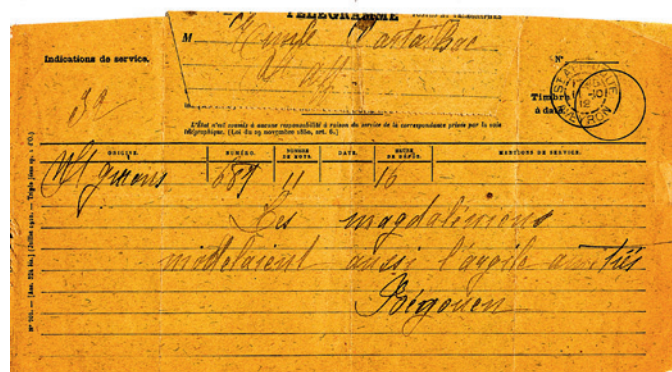 TÉLÉGRAMME
M Emile Cartailhac
St Aff
Indications de service.
N°
Timbre
à date
L'État n'est soumis à aucune responsabilité à raison du service de la correspondance privée par la voie
télégraphique. (Loi du 29 novembre 1850, art. 6.)
ORIGINE. NUMÉRO. NOMBRE DE MOTS. DATE. HEURE DE DÉPÔT. MENTIONS DE SERVICE.
St girons 687 11 16
Les magdaléniens
modelaient aussi l'argile amitiés
Bégouen